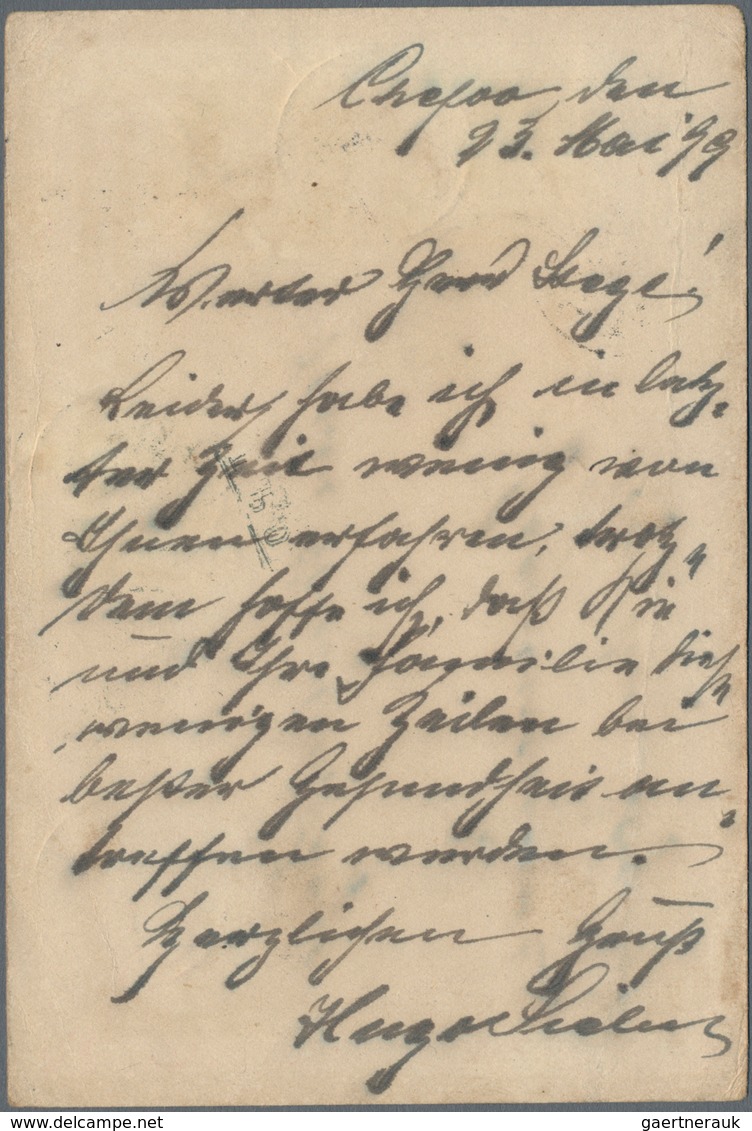 Chefoo, den
23. Mai 99
Werter Herr
Leider habe ich in letz-
ter Zeit wenig von
Ihnen erfahren, trotz-
dem hoffe ich, daß Sie
und Ihre Familie diese
wenigen Zeilen bei
beßter Gesundheit an-
treffen werden.
Herzlichen Gruß
Hugo
delcampe.net
gaertnerauk